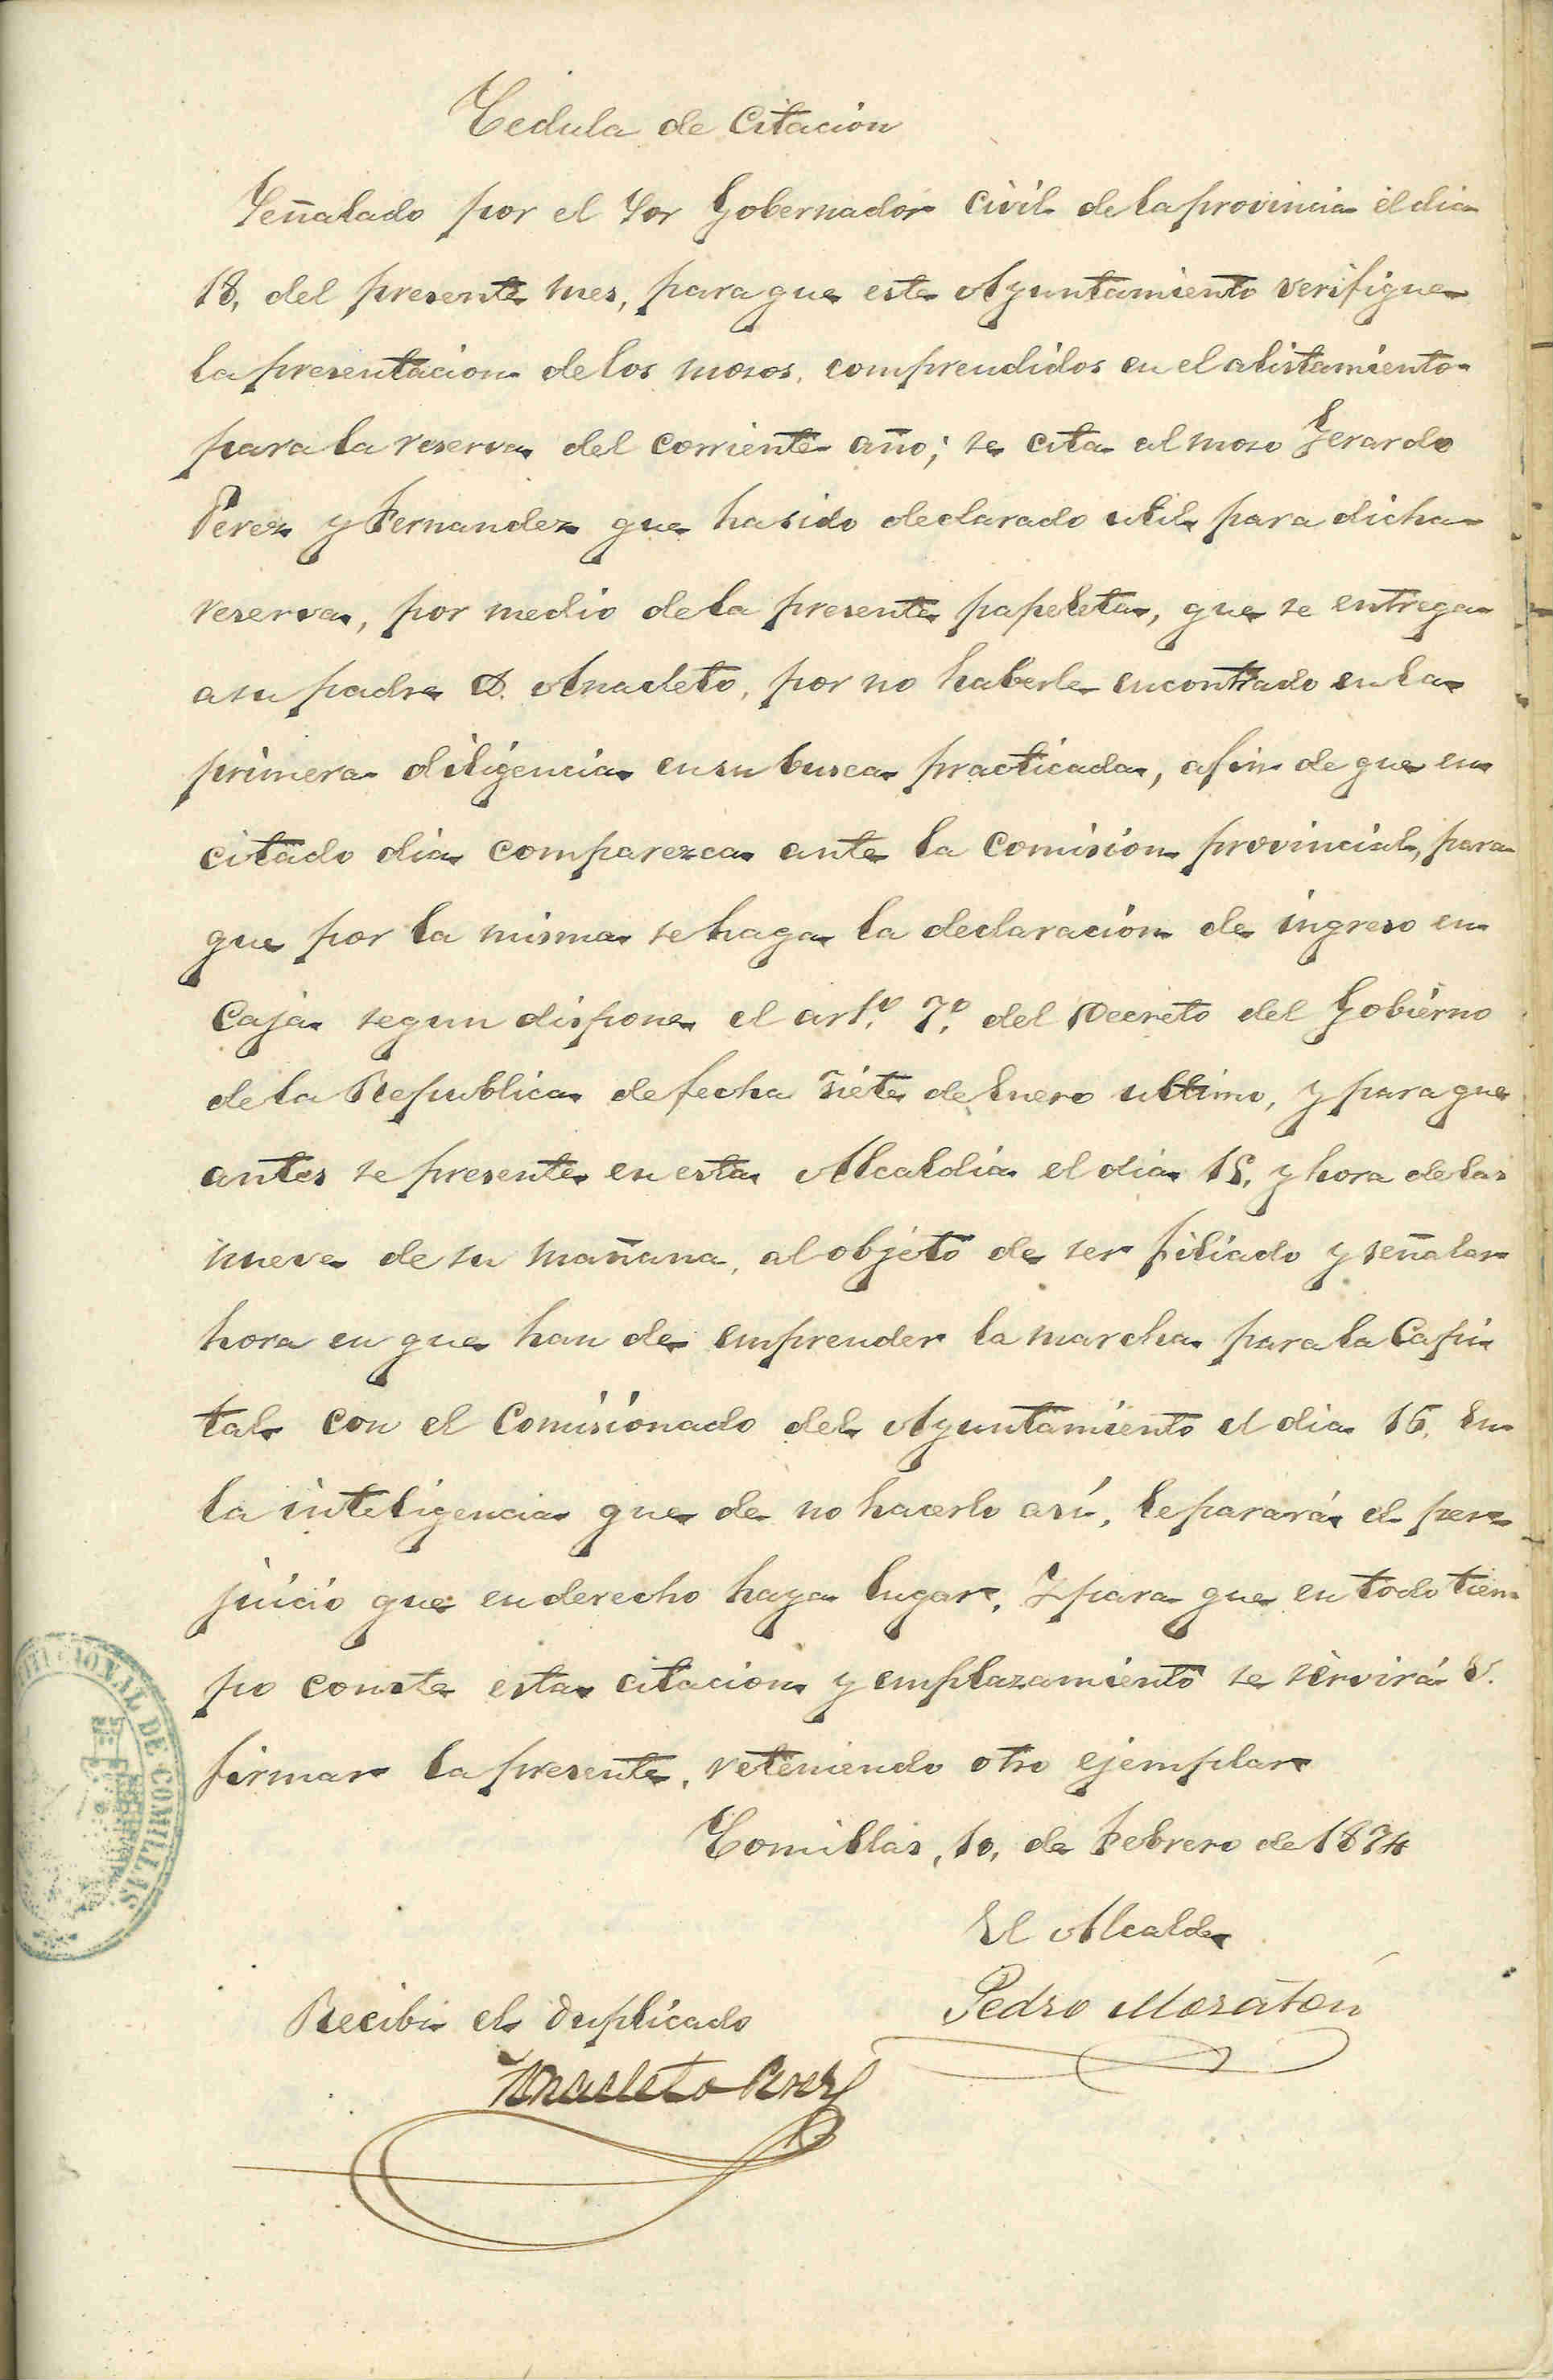 Cedula de Citación
Señalado por el Sor Gobernador Civil de la provincia el dia
18, del presente mes, para que este Ayuntamiento verifique
la presentacion de los mozos, comprendidos en el alistamiento
para la reserva del corriente año; se cita al mozo Gerardo
Pérez y Fernandez que ha sido declarado util para dicha
reserva, por medio de la presente papeleta, que se entrega
a su padre D. Anacleto, por no haberle encontrado en la
primera diligencia en su busca practicada, a fin de que en
citado dia comparezca ante la Comisión provincial, para
que por la misma se haga la declaración de ingreso en
Caja segun dispone el artº. 7º. del Decreto del Gobierno
de la Republica de fecha siete de Enero ultimo, y para que
antes se presente en esta Alcaldia el dia 15, y hora de las
nueve de su mañana, al objeto de ser filiado y señalar
hora en que han de emprender la marcha para la Capi
tal con el Comisionado del Ayuntamiento el dia 16. En
la inteligencia que de no hacerlo así, le parará el per
juicio que en derecho haya lugar. Y para que en todo tiem
po conste esta citacion y emplazamiento se servirá V.
firmar la presente, reteniendo otro ejemplar
Comillas, 10, de Febrero de 1874
El Alcalde
Pedro Moratón
Recibi el duplicado
Anacleto Perez
CIONAL DE COMILLAS